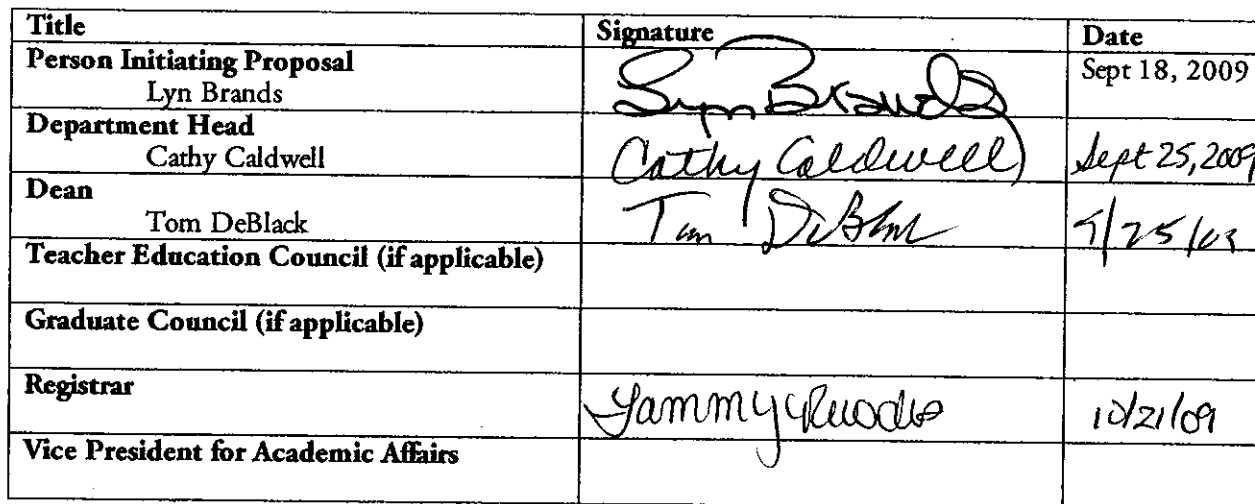 Title Signature Date
Person Initiating Proposal Sept 18, 2009
Lyn Brands Lyn Brands
Department Head
Cathy Caldwell Cathy Caldwell Sept 25, 2009
Dean
Tom DeBlack Tom DeBlack
Teacher Education Council (if applicable)
Graduate Council (if applicable)
Registrar
Tammy Rhodes 10/21/09
Vice President for Academic Affairs